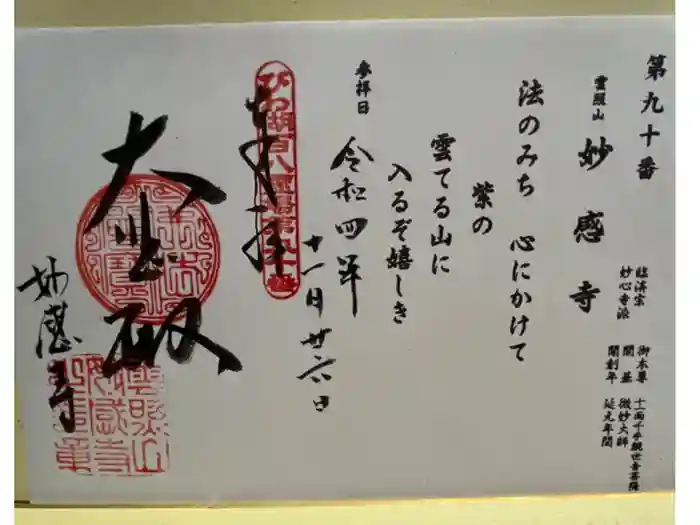 第九十番
雲照山
妙感寺
臨済宗
妙心寺派
御本尊 十一面千手観世音菩薩
開基 微妙大師
開創年 延元年間
法のみち 心にかけて
紫の
雲てる山に
入るぞ嬉しき
参拝日
令和四年
十一月廿六日
奉拝
びわ湖百八霊場第九十番
大悲殿
妙感寺